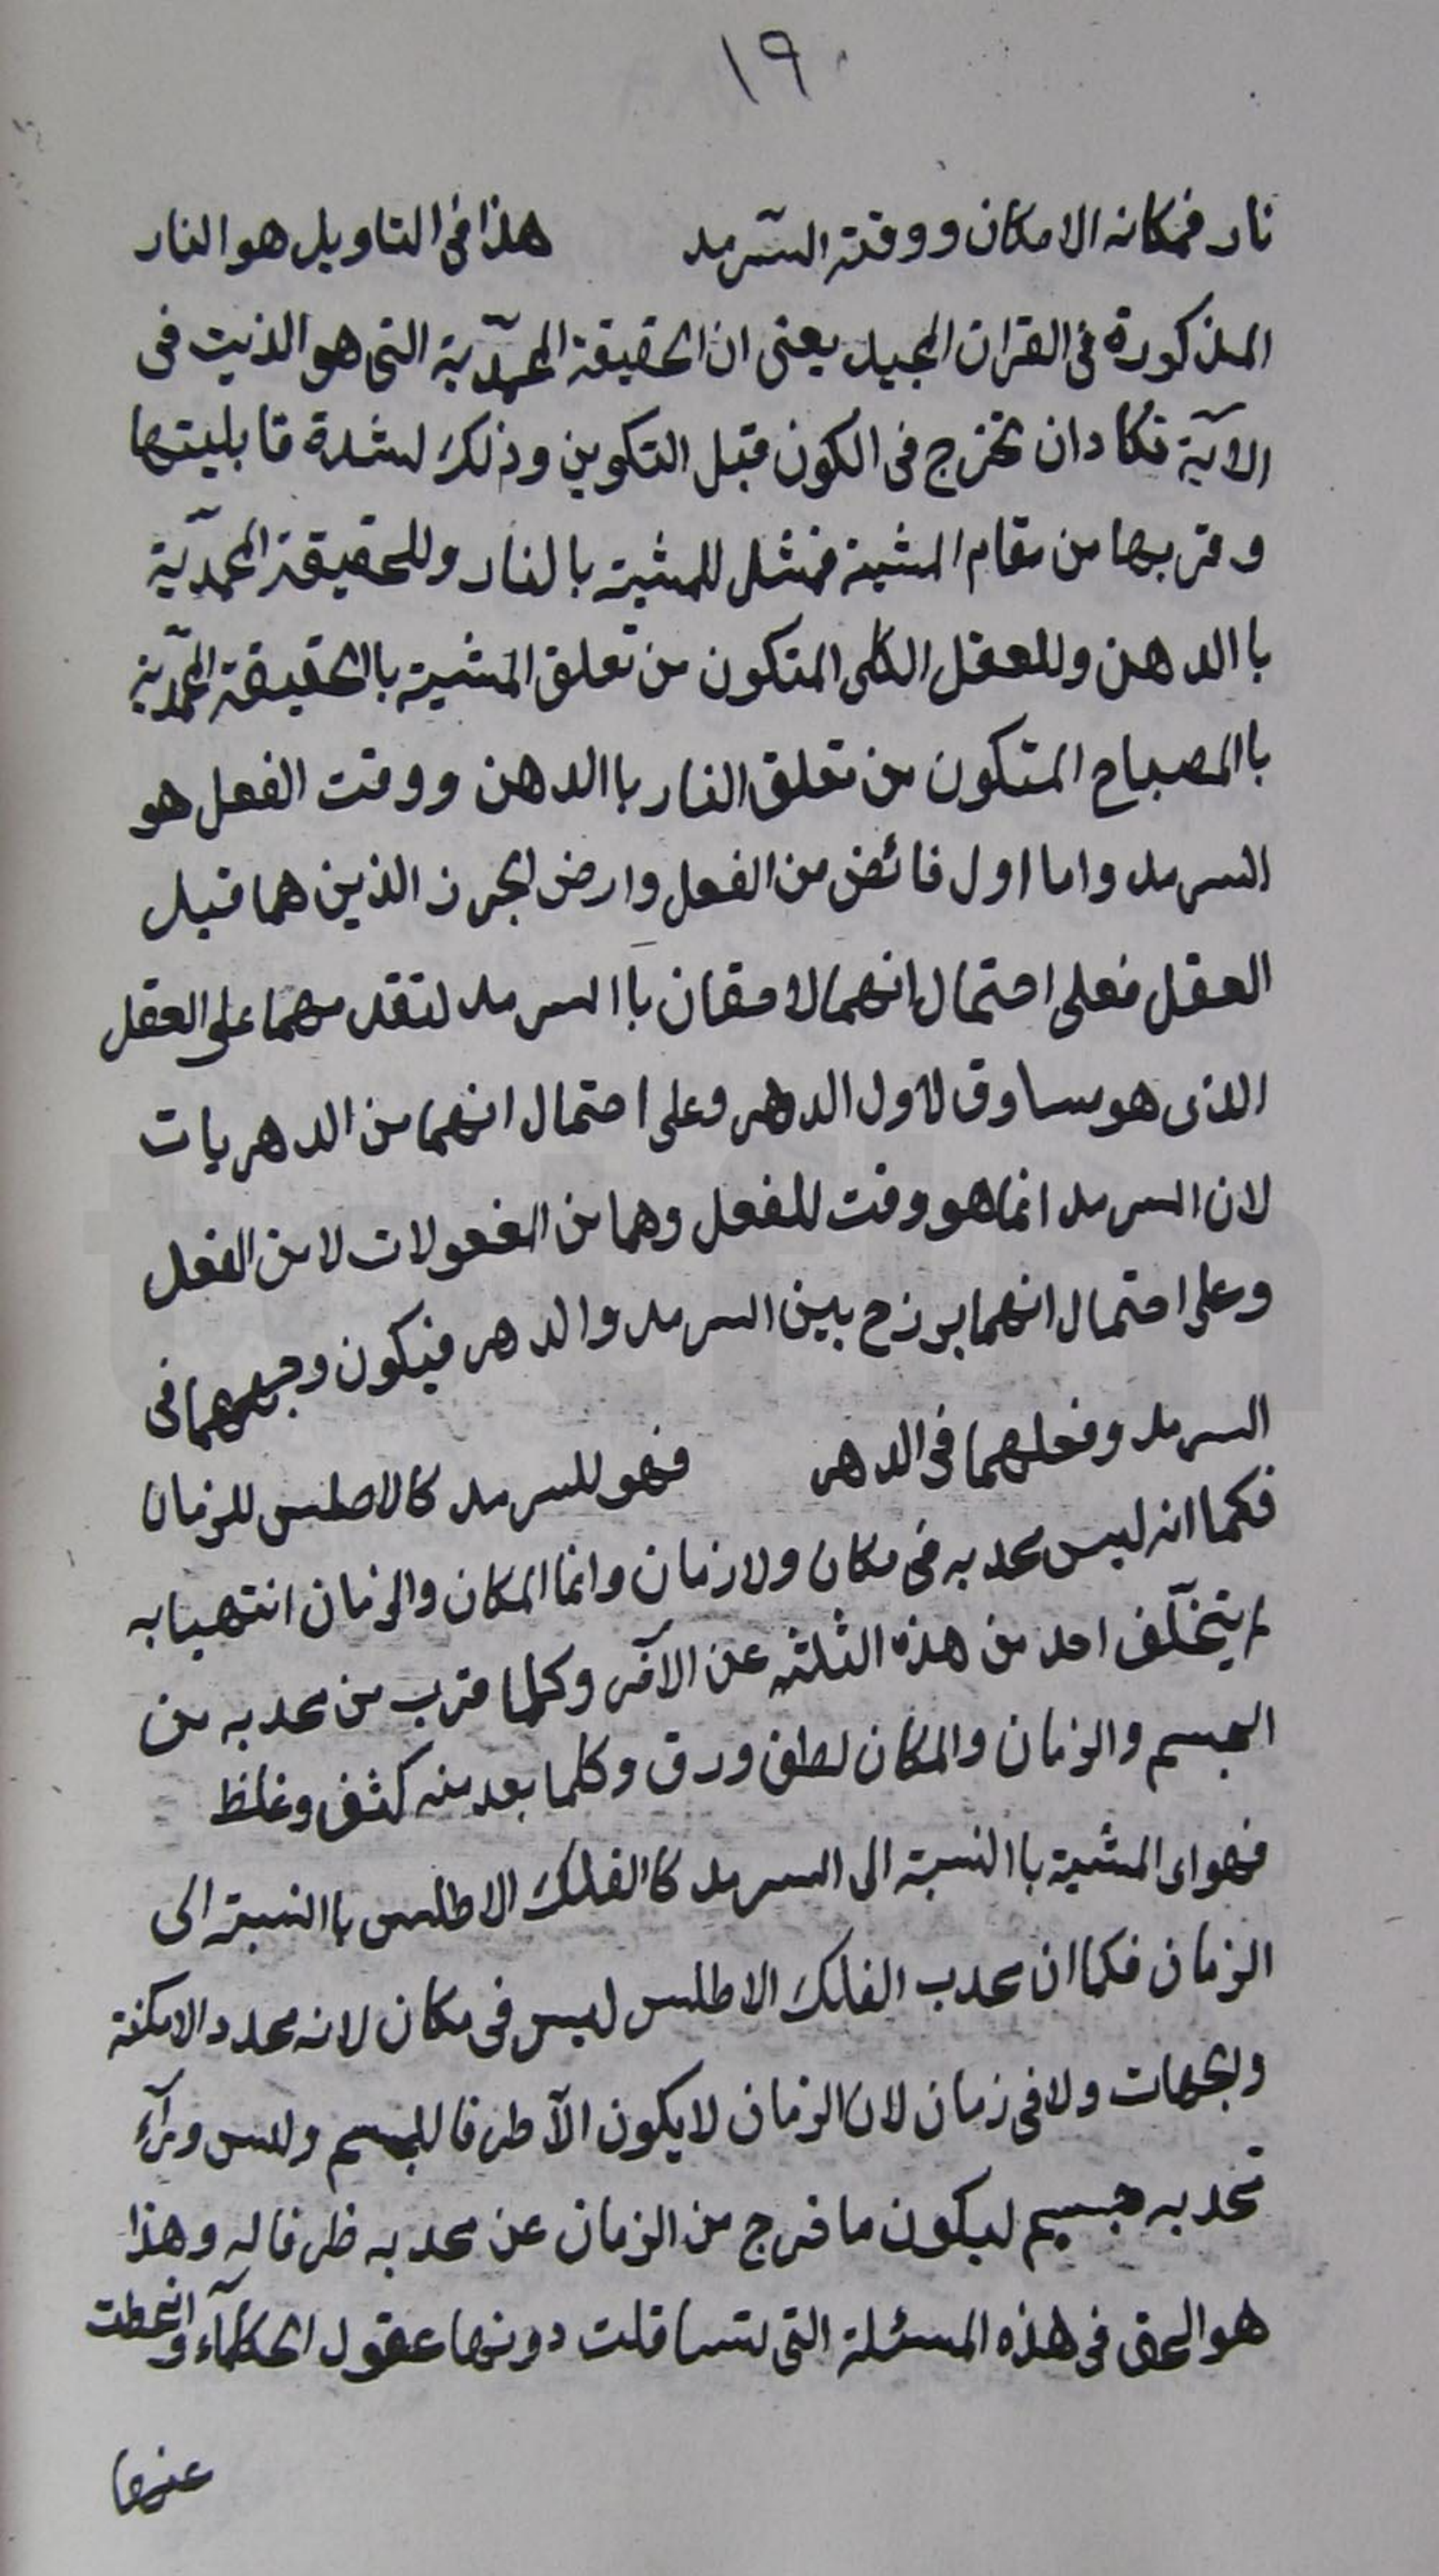 ١٩
نار فمكانه الامكان ووقته السّرمد هذا فى التاويل هو النار
المذكورة فى القران المجيد يعنى ان الحقيقة المحمّدية التى هو الذيت فى
الآية تكاد ان تخرج فى الكون قبل التكوين وذلك لشدة قابليتها
وقربها من مقام المشية فمثل للمشية بالنار وللحقيقة المحمّدية
باالدهن وللعقل الكلى المتكون من تعلق المشية باالحقيقة المحمّدية
باالمصباح المتكون من تعلق النار باالدهن ووقت الفعل هو
السرمد واما اول فائض من الفعل وارض الجرز الذين هما قبل
العقل فعلى احتمال انهما لاحقان باالسرمد لتقدمهما على العقل
الذى هو مساوق لاول الدهر وعلى احتمال انهما من الدهريات
لان السرمد انما هو وقت للفعل وهما من المفعولات لا من الفعل
وعلى احتمال انهما برزح بين السرمد والدهر فيكون وجههما فى
السرمد وفعلهما فى الدهر فهو للسرمد كالاطلس للزمان
فكما انه ليس محدبه فى مكان ولا زمان وانما المكان والزمان انتهيا به
لم يتخلّف احد من هذه الثلثه عن الآخر وكلما قرب من محدبه من
الجسم والزمان والمكان لطف ورق وكلما بعد منه كثف وغلظ
فهو اى المشية باالنسبة الى السرمد كاالفلك الاطلس باالنسبة الى
الزمان فكما ان محدب الفلك الاطلس ليس فى مكان لانه محدد الامكنة
والجهات ولا فى زمان لان الزمان لا يكون الّا ظرفا للجسم وليس ورآء
محدبه جسيم ليكون ما خرج من الزمان عن محدبه ظرفا له وهذا
هو الحق فى هذه المسئلة التى تساقلت دونها عقول الحكمآء وانحطت
عنها